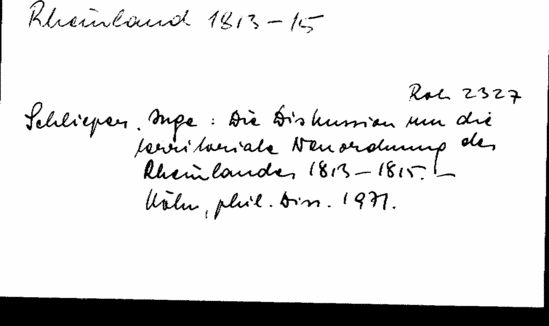 Rheinland 1813-15
Roh 2327
Schlieper, Inge: Die Diskussion um die
territoriale Neuordnung des
Rheinlandes 1813-1815. -
Köln, phil. Diss. 1971.